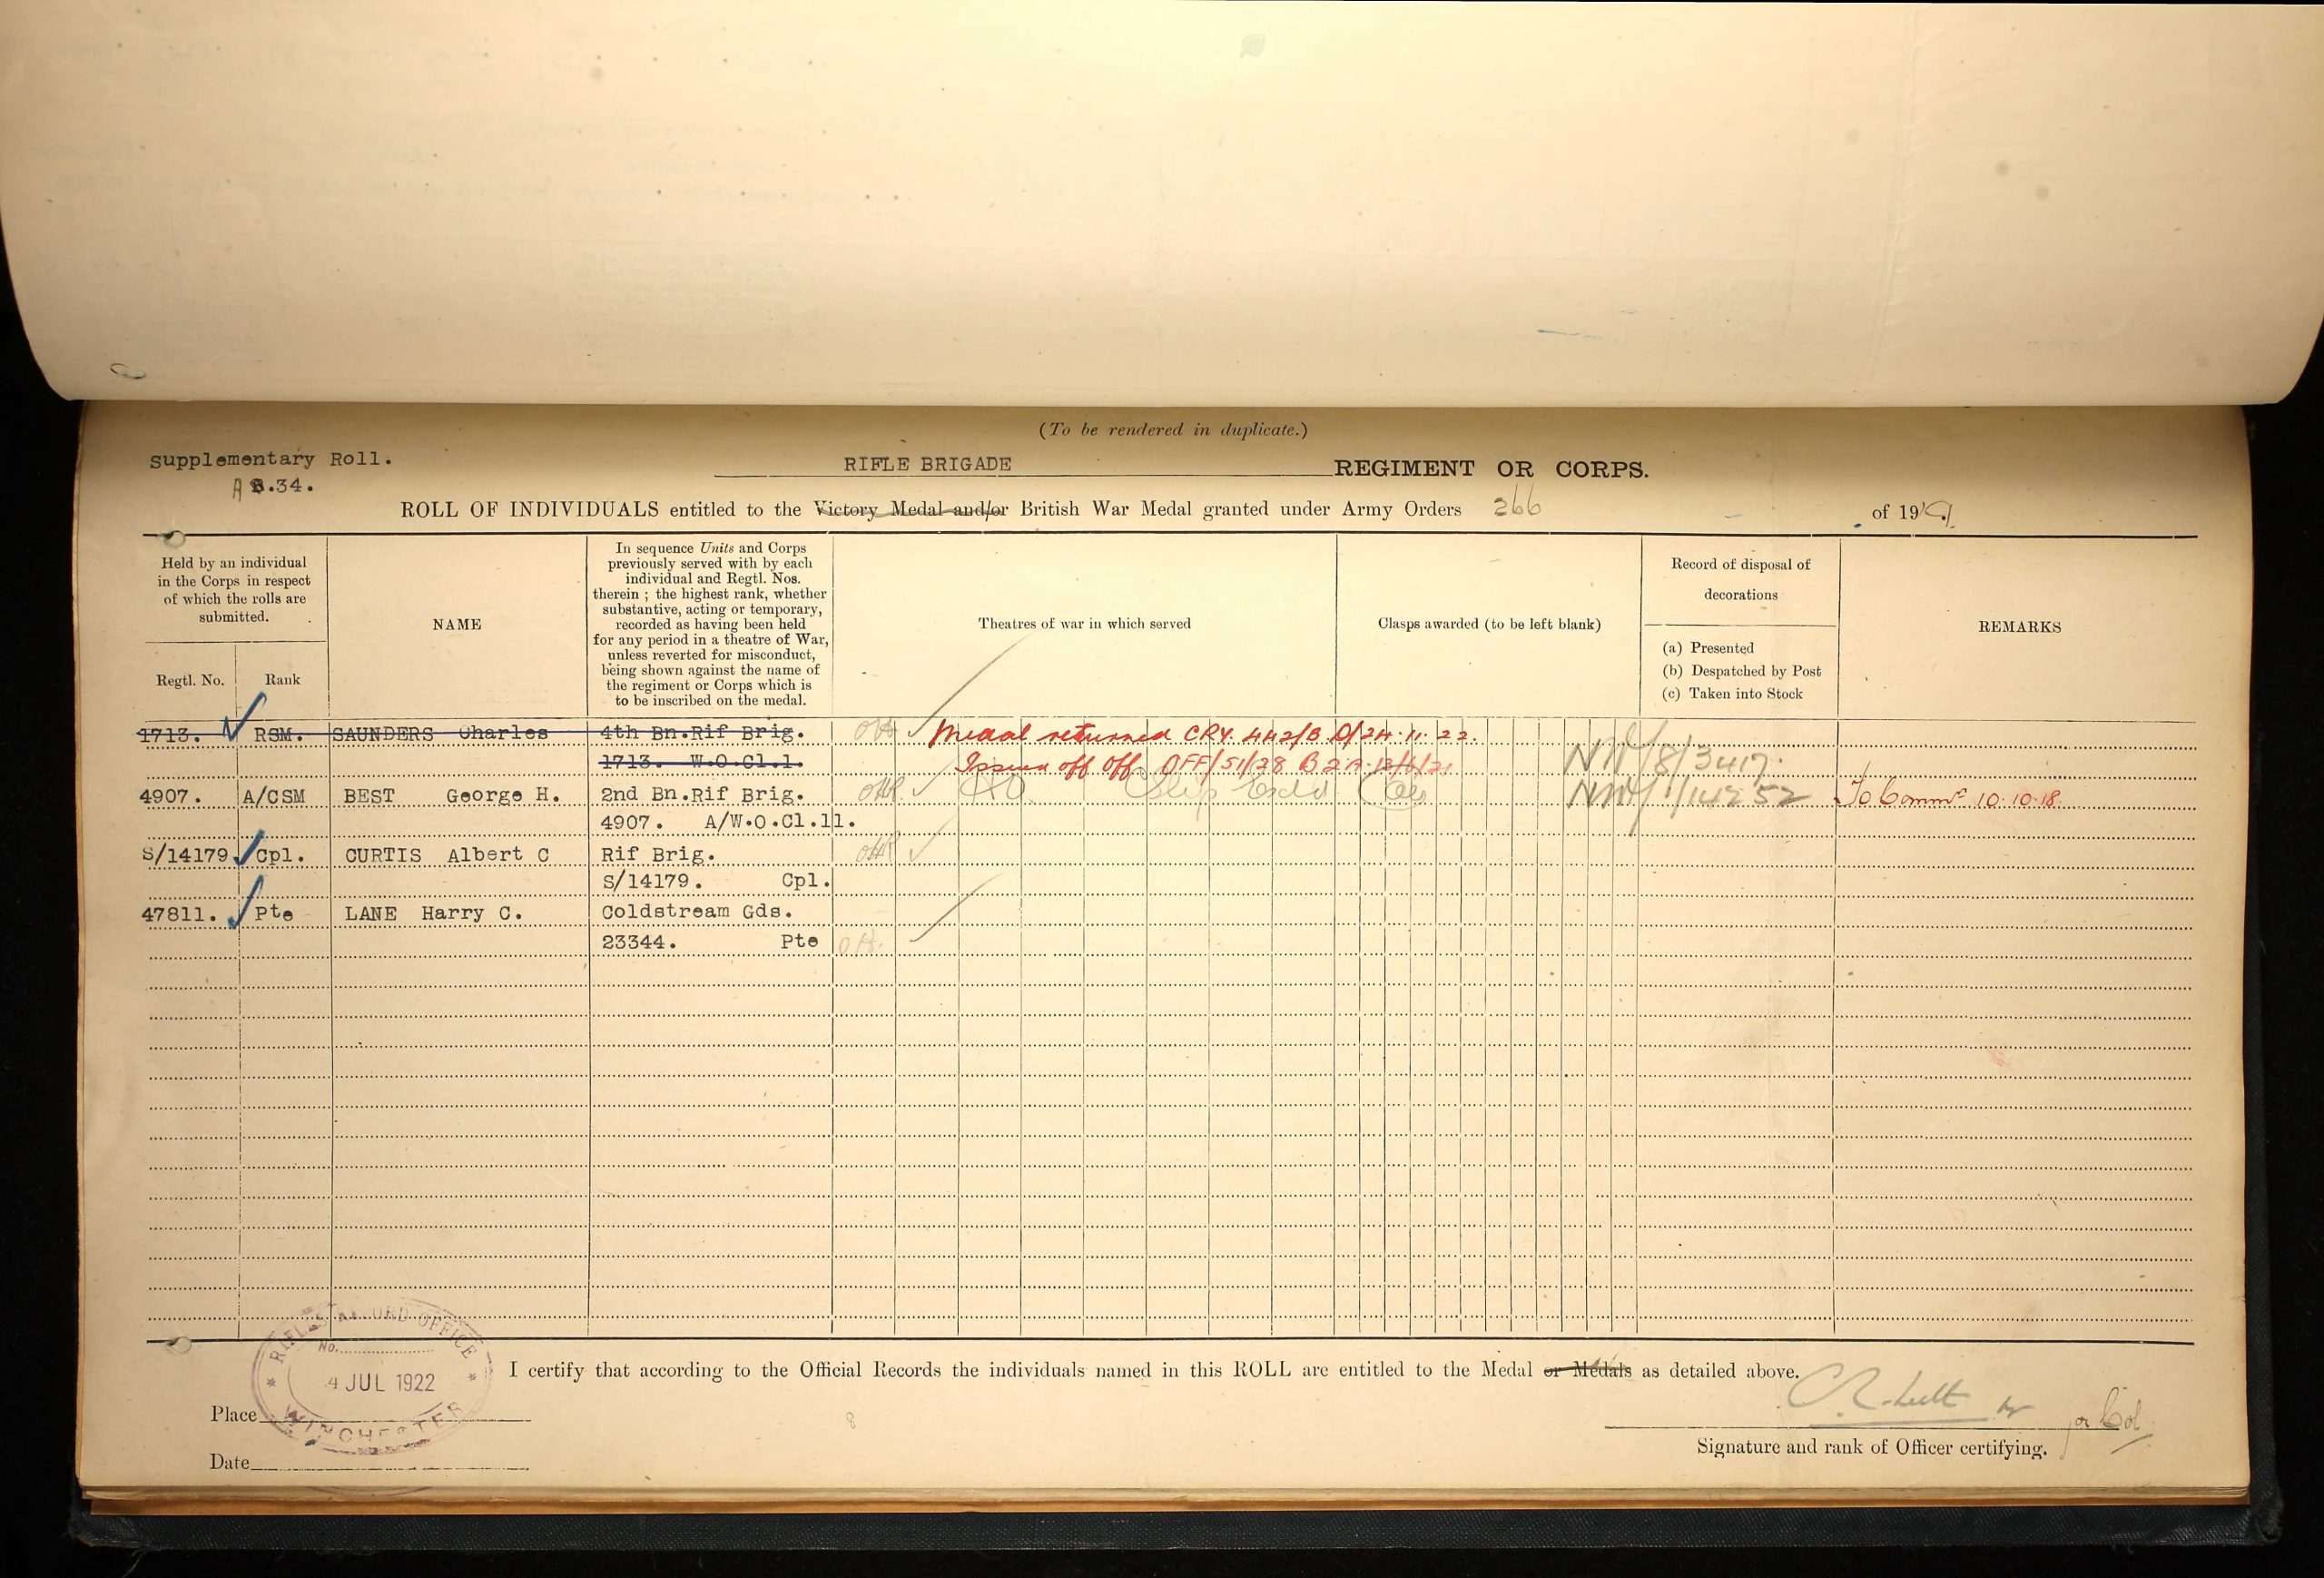 (To be rendered in duplicate.)
Supplementary Roll.
RIFLE BRIGADE REGIMENT OR CORPS.
A B.34.
ROLL OF INDIVIDUALS entitled to the Victory Medal and/or British War Medal granted under Army Orders 266 of 1919.
Held by an individual
in the Corps in respect
of which the rolls are
submitted.
Regtl. No. Rank
NAME
In sequence Units and Corps
previously served with by each
individual and Regtl. Nos.
therein ; the highest rank, whether
substantive, acting or temporary,
recorded as having been held
for any period in a theatre of War,
unless reverted for misconduct,
being shown against the name of
the regiment or Corps which is
to be inscribed on the medal.
Theatres of war in which served
Clasps awarded (to be left blank)
Record of disposal of
decorations
(a) Presented
(b) Despatched by Post
(c) Taken into Stock
REMARKS
1713. RSM. SAUNDERS Charles 4th Bn.Rif Brig. Medal returned CRV. 442/B D/24.11.22.
1713. W.O.Cl.1. Issued off Off. OFF/51/28 NW/8/3417.
4907. A/CSM BEST George H. 2nd Bn.Rif Brig. To Commn 10.10.18.
4907. A/W.O.Cl.11.
S/14179 Cpl. CURTIS Albert C Rif Brig.
S/14179. Cpl.
47811. Pte LANE Harry C. Coldstream Gds.
23344. Pte
RIFLES RECORD OFFICE
No.
4 JUL 1922
WINCHESTER
I certify that according to the Official Records the individuals named in this ROLL are entitled to the Medal or Medals as detailed above.
Place
for Col
Signature and rank of Officer certifying.
Date